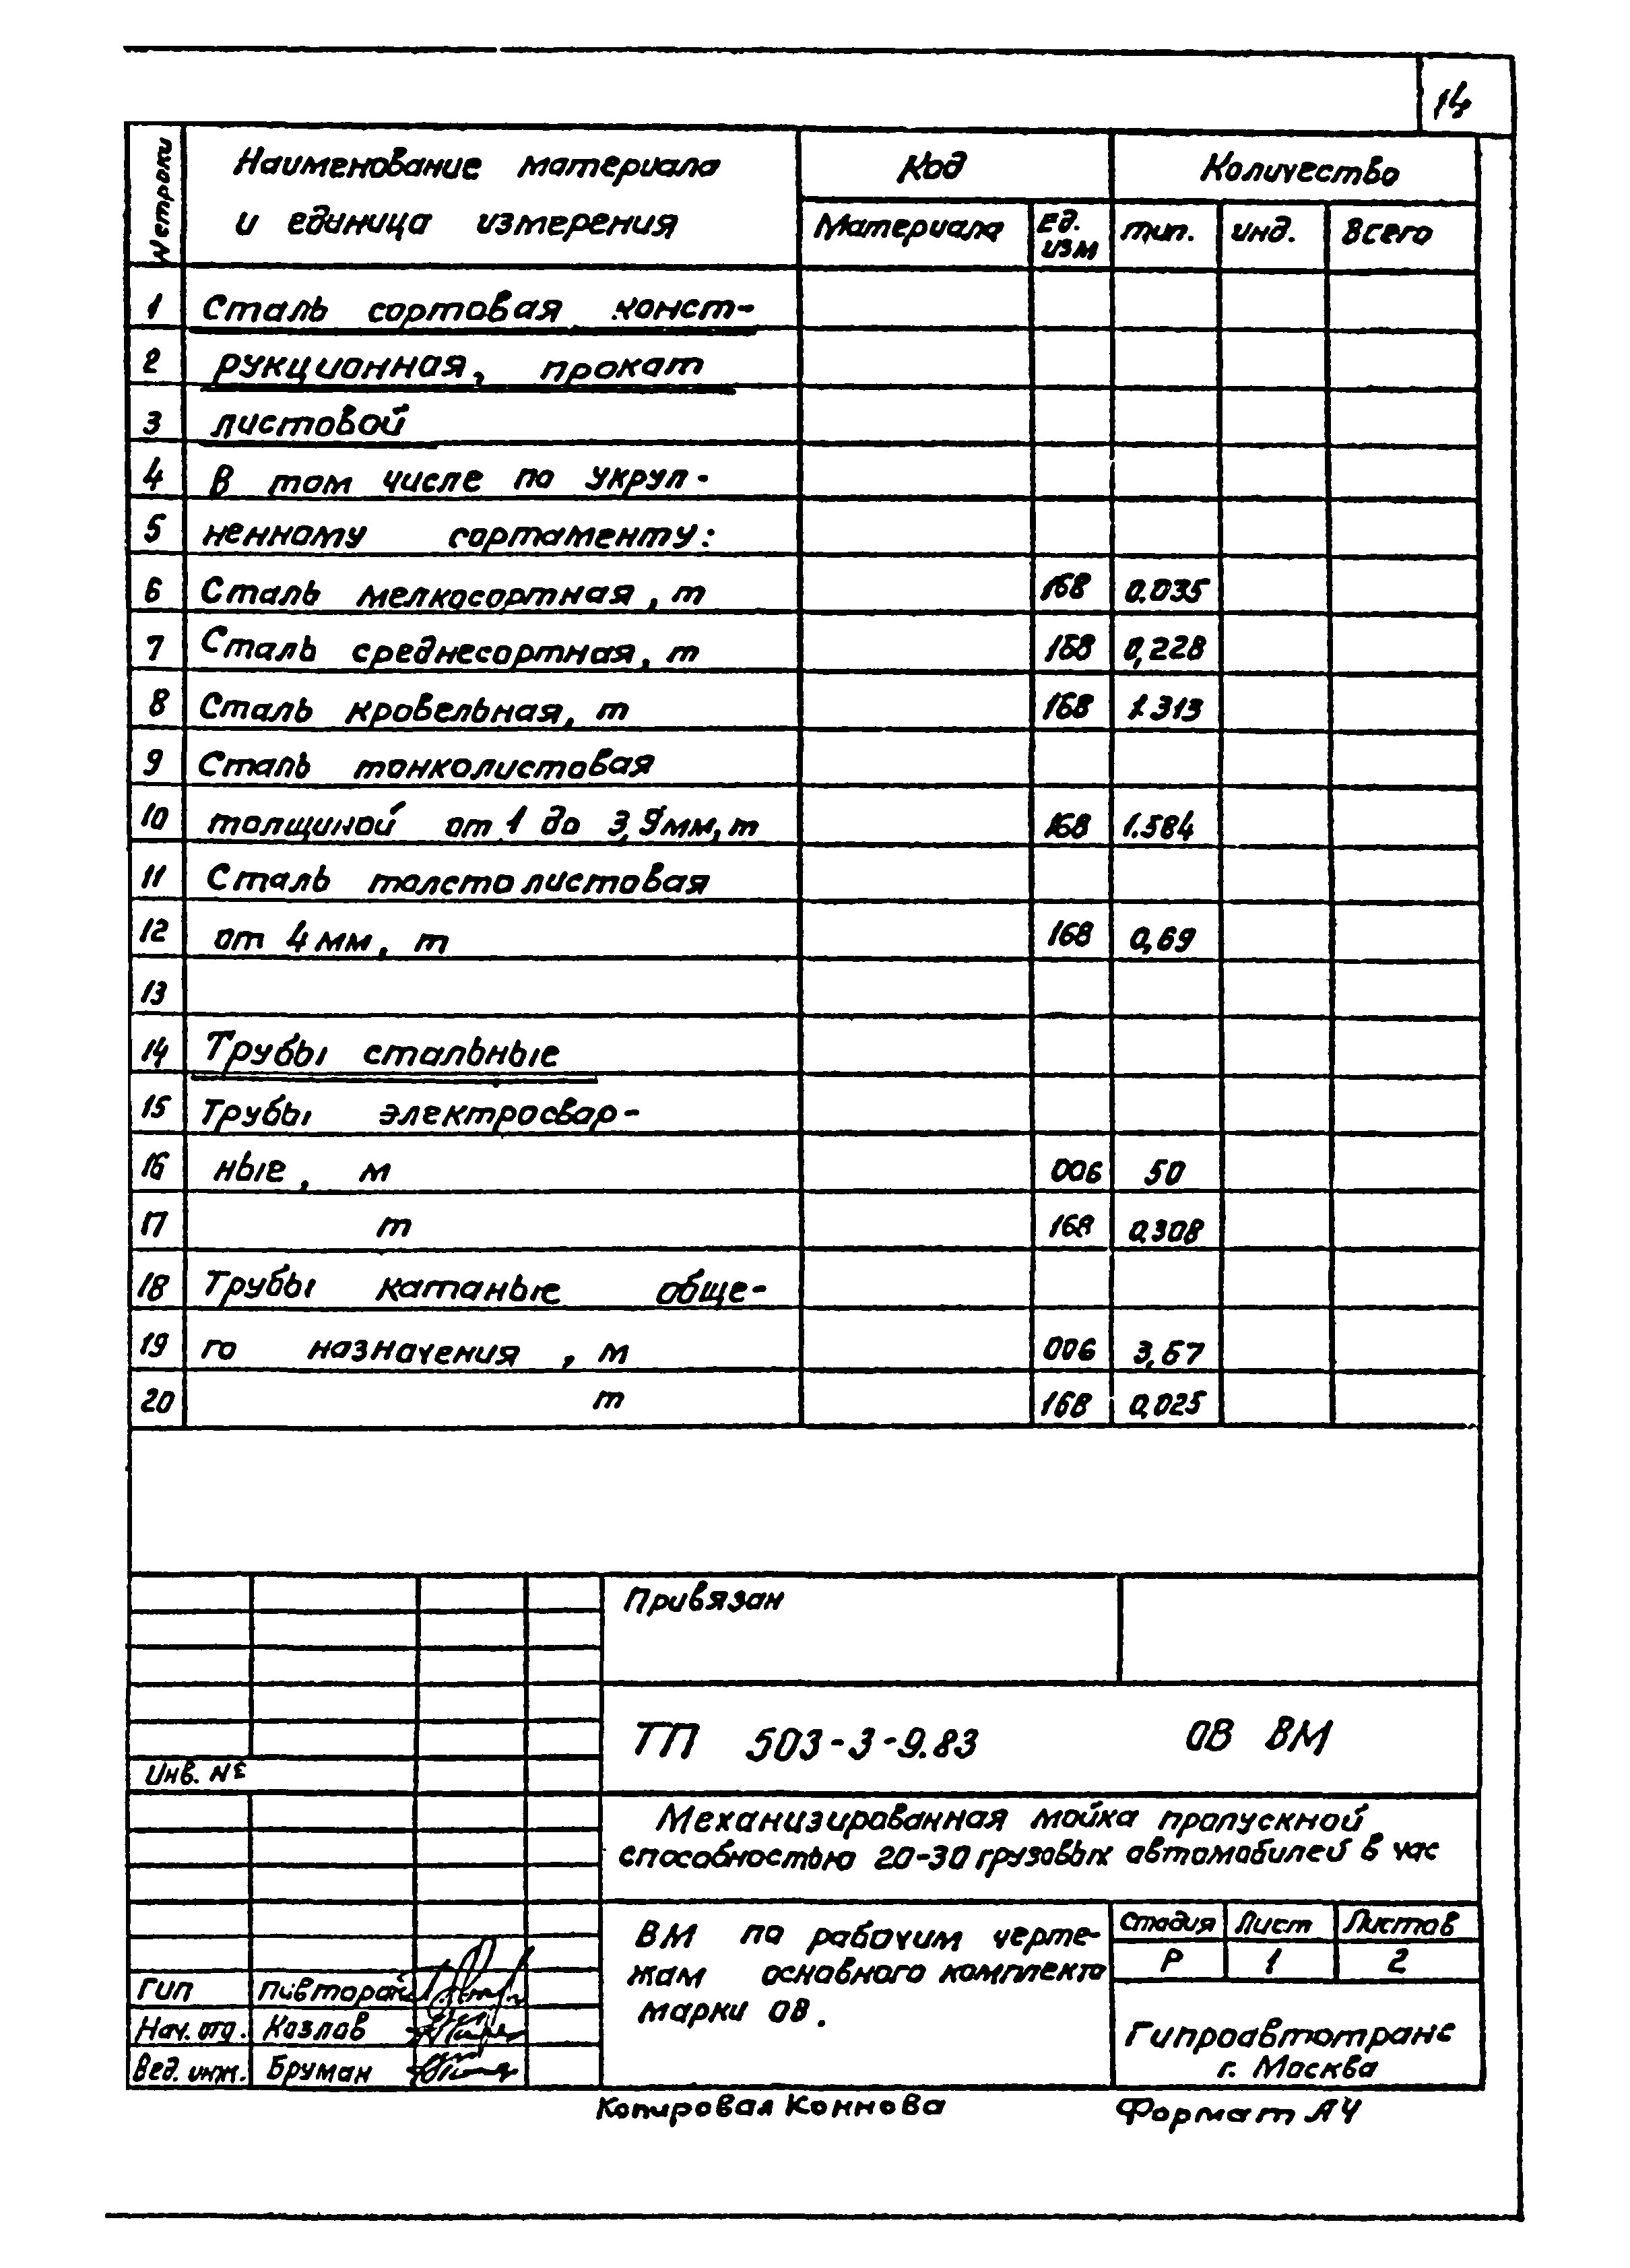 14
№ строки
Наименование материала
и единица измерения
Код
Количество
Материала
Ед.
изм
тип.
инд.
Всего
1 Сталь сортовая конст-
2 рукционная, прокат
3 листовой
4 В том числе по укруп-
5 ненному сортаменту:
6 Сталь мелкосортная, т 168 0.035
7 Сталь среднесортная, т 168 0,228
8 Сталь кровельная, т 168 1.313
9 Сталь тонколистовая
10 толщиной от 1 до 3,9мм, т 168 1.584
11 Сталь толстолистовая
12 от 4 мм, т 168 0,69
13
14 Трубы стальные
15 Трубы электросвар-
16 ные, м 006 50
17 т 168 0,308
18 Трубы катаные обще-
19 го назначения, м 006 3,67
20 т 168 0,025
Привязан
ТП 503-3-9.83 ОВ ВМ
Инв. №
Механизированная мойка пропускной
способностью 20-30 грузовых автомобилей в час
ВМ по рабочим черте-
жам основного комплекта
марки ОВ.
Стадия Лист Листов
Р 1 2
Гипроавтотранс
г. Москва
ГИП Пивторай
Нач. отд. Козлов
Вед. инж. Бруман
Копировал Коннова Формат А4